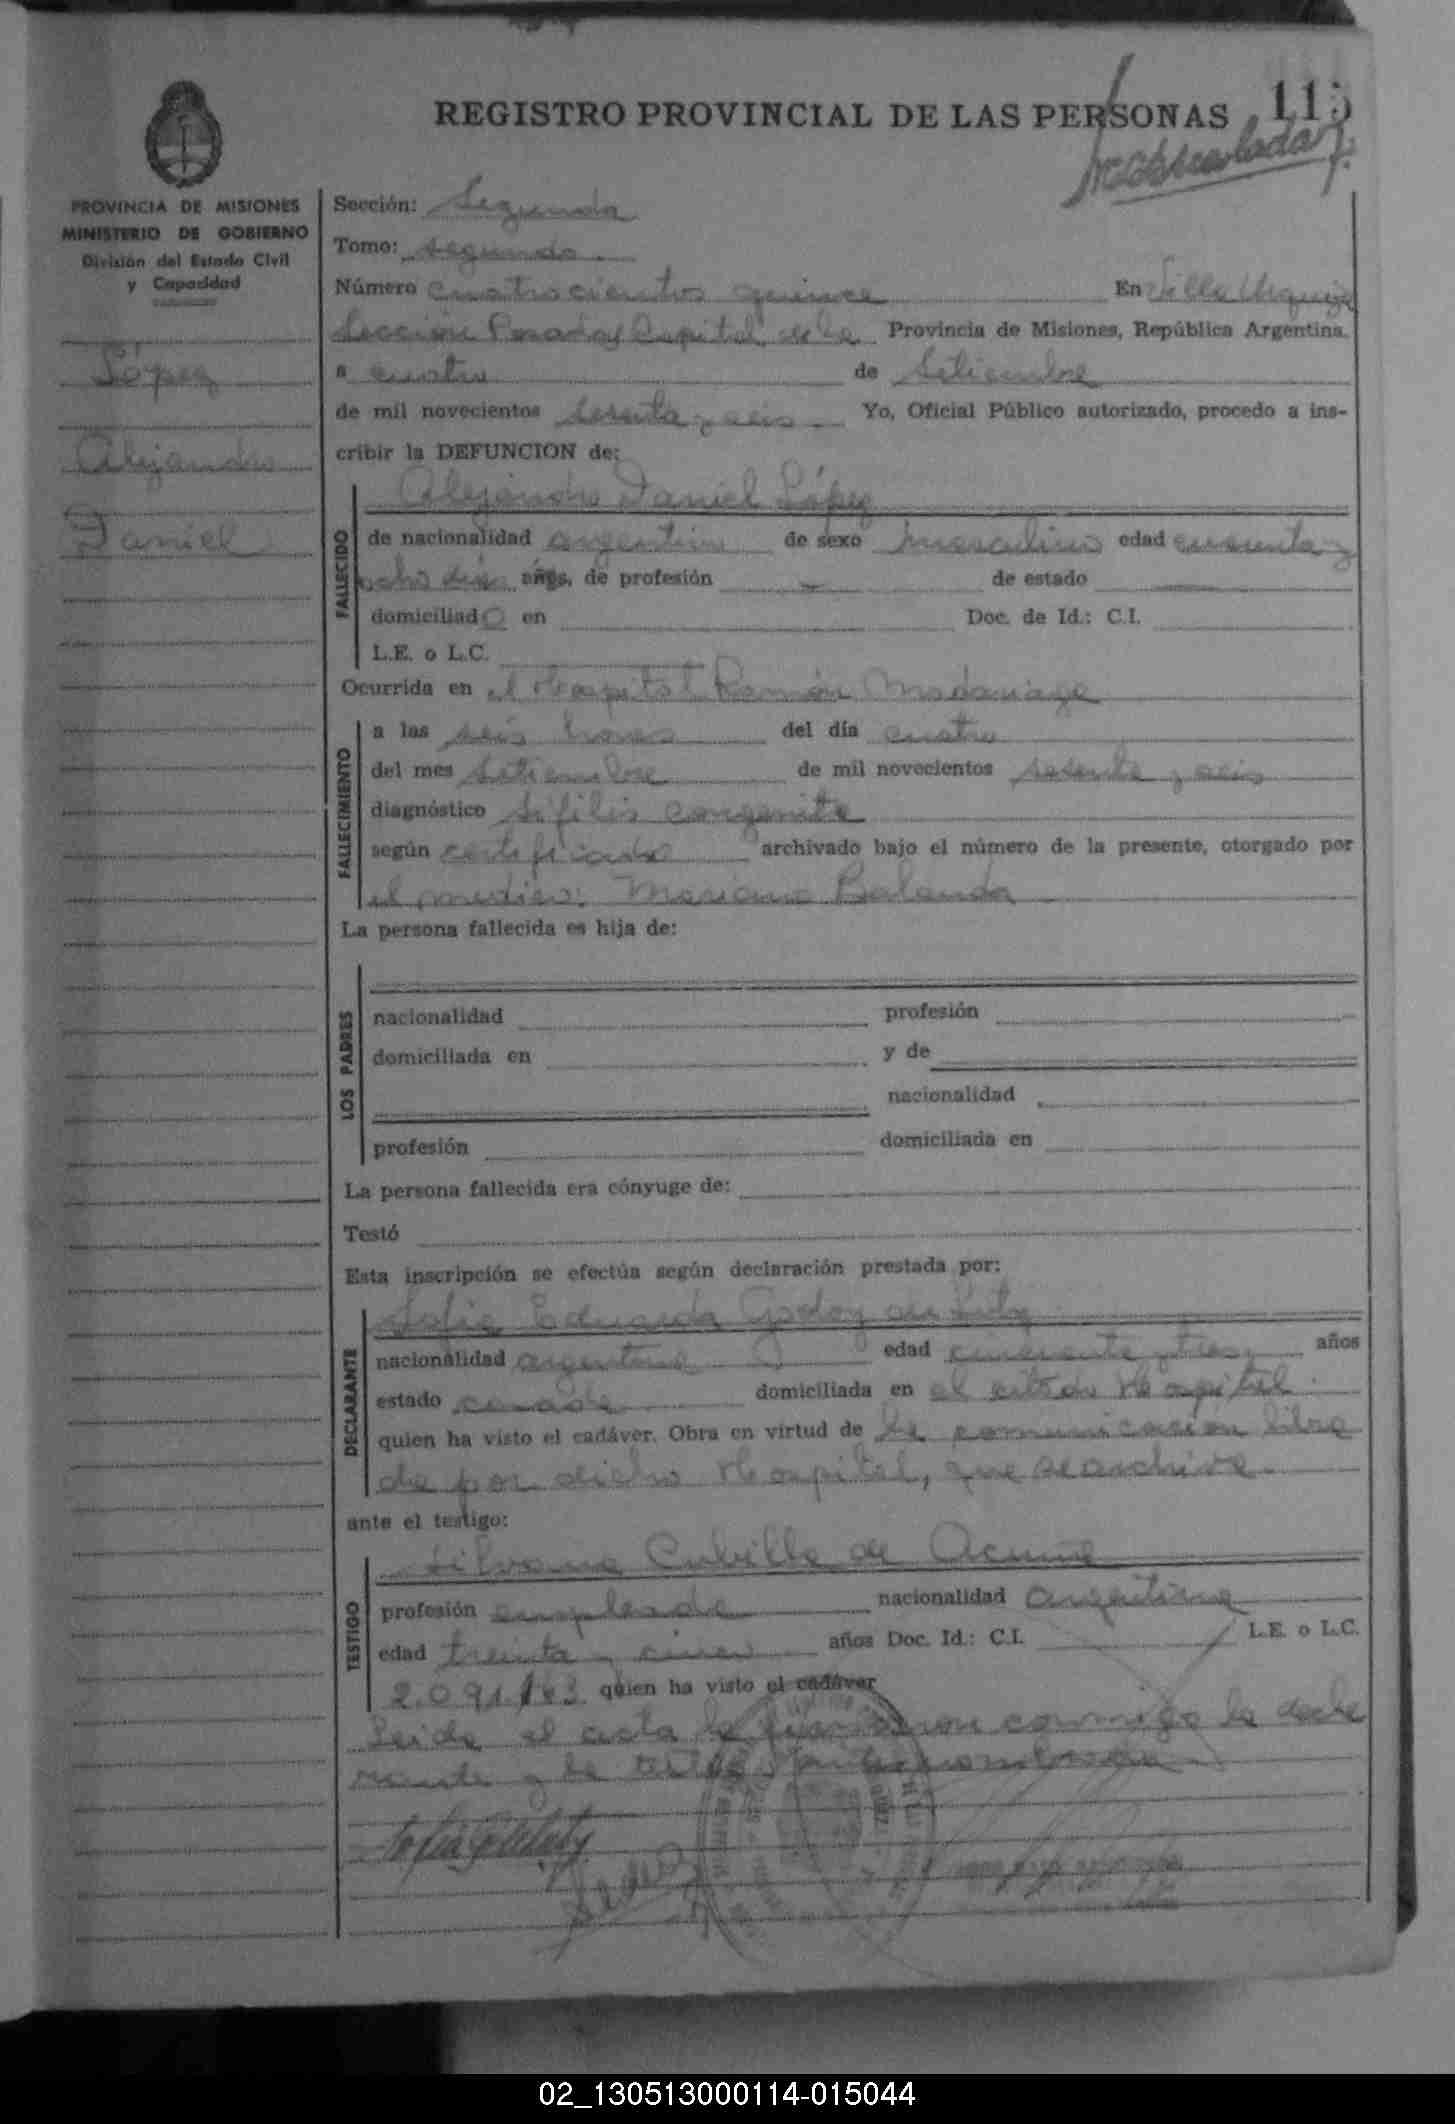 REGISTRO PROVINCIAL DE LAS PERSONAS 115
PROVINCIA DE MISIONES
MINISTERIO DE GOBIERNO
División del Estado Civil
y Capacidad
López
Alejandro
Daniel
Sección: Segunda
Tomo: segundo
Número cuatrocientos quince En Villa Urquiza
Sección Posadas Capital de la Provincia de Misiones, República Argentina,
a cuatro de Setiembre
de mil novecientos sesenta y seis Yo, Oficial Público autorizado, procedo a ins-
cribir la DEFUNCION de:
FALLECIDO
Alejandro Daniel López
de nacionalidad argentina de sexo masculino edad cuarenta y
ocho días años, de profesión de estado
domiciliado en Doc. de Id.: C.I.
L.E. o L.C.
Ocurrida en el Hospital Ramón Madariaga
FALLECIMIENTO
a las seis horas del día cuatro
del mes setiembre de mil novecientos sesenta y seis
diagnóstico sífilis congenita
según certificado archivado bajo el número de la presente, otorgado por
el médico: Mariano Balanda
La persona fallecida es hija de:
LOS PADRES
nacionalidad profesión
domiciliada en y de
nacionalidad
profesión domiciliada en
La persona fallecida era cónyuge de:
Testó
Esta inscripción se efectúa según declaración prestada por:
DECLARANTE
Sofia Eduarda Godoy de
nacionalidad argentina edad cincuenta y tres años
estado casada domiciliada en el citado Hospital
quien ha visto el cadáver. Obra en virtud de la comunicación libra
da por dicho Hospital, que se archiva.
ante el testigo:
TESTIGO
Silvana Cubilla de Acuña
profesión empleada nacionalidad argentina
edad treinta y cinco años Doc. Id.: C.I. L.E. o L.C.
2.091.163 quien ha visto el cadáver
Leida el acta la firmaron conmigo la decla
rante y la testigo
02_130513000114-015044